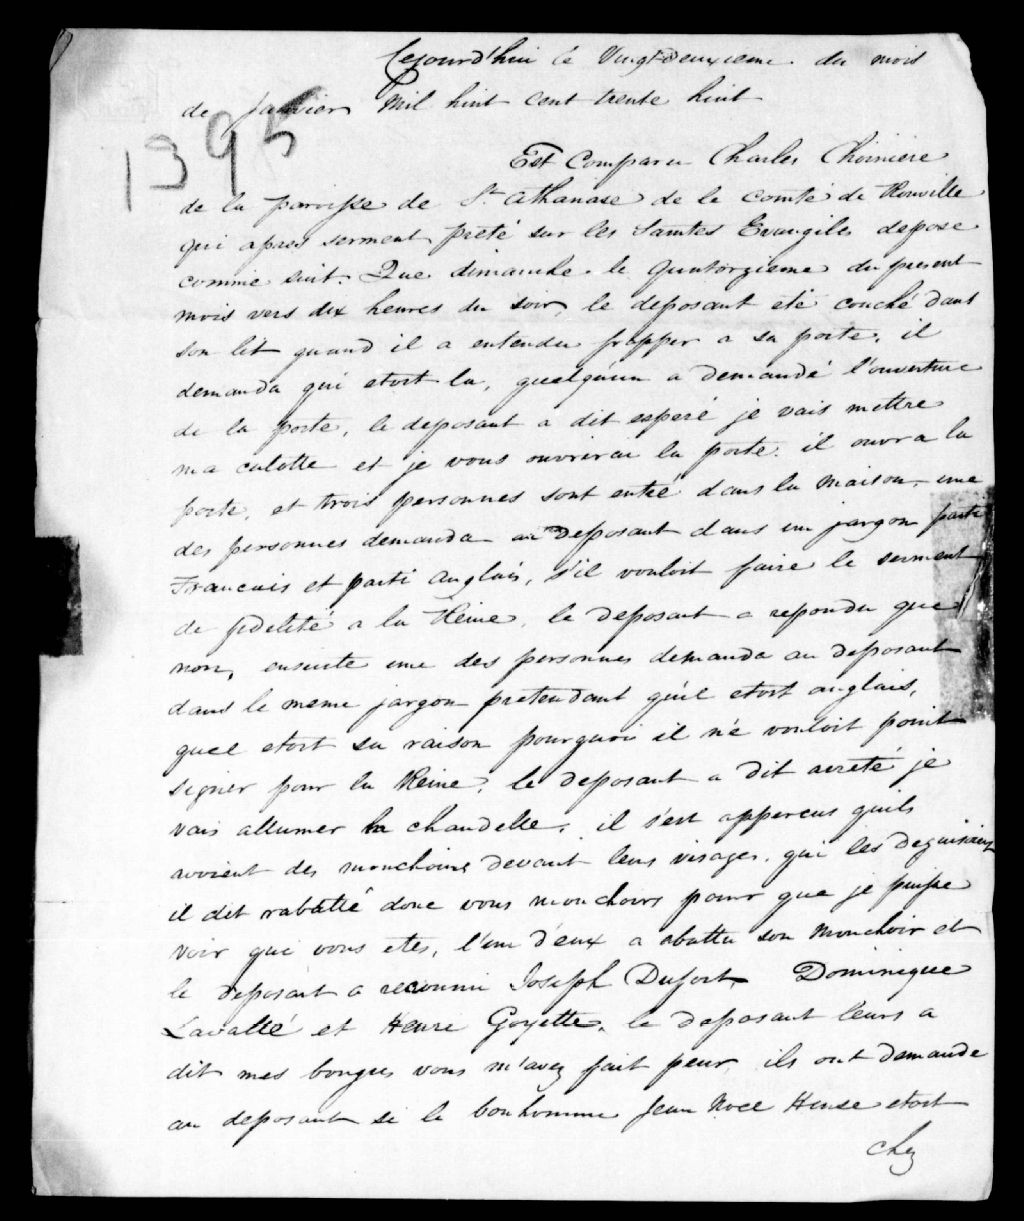 Cejourd'hui le Vingt-deuxieme du mois
de Janvier Mil huit cent trente huit
1395
Est Comparu Charles Choiniere
de la paroisse de St. Athanase de le comté de Rouville
qui apres serment preté sur les Saintes Evangiles depose
comme suit. Que dimanche le quatorzieme du present
mois vers dix heures du soir, le deposant eté couché dans
son lit quand il a entendu frapper a sa porte, il
demanda qui etoit la, quelqu'un a demandé l'ouverture
de la porte, le deposant a dit esperé je vais mettre
ma culotte et je vous ouvrirai la porte. il ouvra la
porte, et trois personnes sont entré dans la Maison, une
des personnes demanda au deposant dans un jargon parti
Francais et parti anglais, s'il vouloit faire le serment
de fidelité a la Reine, le deposant a repondu que
non, ensuite une des personnes demanda au deposant
dans le meme jargon pretendant qu'il etoit anglais,
quel etoit sa raison pourquoi il n'é vouloit point
signer pour la Reine, le deposant a dit areté je
vais allumer la chandelle, il s'est appercus quils
avoient des mouchoirs devant leurs visages qui les deguisoient
il dit rabatté donc vous mouchoirs pour que je puisse
voir qui vous etes, l'un d'eux a abattu son Mouchoir et
le deposant a reconnu Joseph Dufort, Dominique
Lavallé et Henri Goyette, le deposant leurs a
dit mes bougres vous m'avez fait peur, ils ont demande
au deposant si le bonhomme Jean Noel Huse etoit
chez